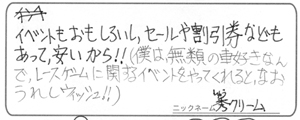 イベントもおもしろいし、セールや割引券なども
あって、安いから!!(僕は、無類の車好きなん
で、レースゲームに関するイベントをやってくれると、なお
うれしいネッシュ!!)
ニックネーム 秀クリーム